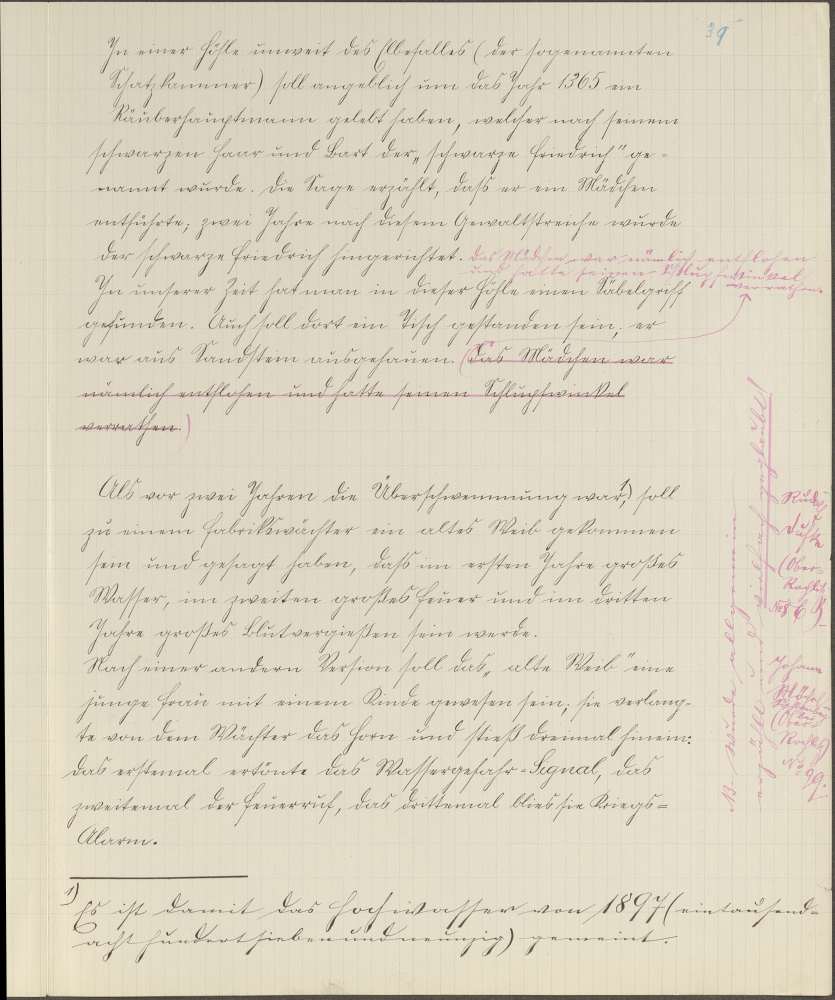 39
In einer Höhle unweit des Elbefalles (der sogenannten
Schatzkammer) soll angeblich um das Jahr 1365 ein
Räuberhauptmann gelebt haben, welcher nach seinem
schwarzen Haar und Bart der „schwarze Friedrich" ge-
nannt wurde. Die Sage erzählt, daß er ein Mädchen
entführte; zwei Jahre nach diesem Gewaltstreiche wurde
der schwarze Friedrich hingerichtet. Das Mädchen war nämlich entflohen
und hatte seinen Schlupfwinkel
verrathen.
In unserer Zeit hat man in dieser Höhle einen Säbelgriff
gefunden. Auch soll dort ein Tisch gestanden sein; er
war aus Sandstein ausgehauen. (Das Mädchen war
nämlich entflohen und hatte seinen Schlupfwinkel
verrathen.)
Als vor zwei Jahren die Überschwemmung war,¹) soll
zu einem Fabrikswächter ein altes Weib gekommen
sein und gesagt haben, daß im ersten Jahre großes
Wasser, im zweiten großes Feuer und im dritten
Jahre großes Blutvergießen sein werde.
Nach einer andern Version soll das „alte Weib" eine
junge Frau mit einem Kinde gewesen sein; sie verlang-
te von dem Wächter das Horn und stieß dreimal hinein:
das erstemal ertönte das Wassergefahr-Signal, das
zweitemal der Feuerruf, das drittemal blies sie Kriegs-
Alarm.
NB. Wurde allgemein
erzählt und vielfach geglaubt!
Rudolf
(Ober-
Johann
(Ober-
No 99.
1) Es ist damit das Hochwasser von 1897 (eintausend-
acht hundert siebenundneunzig) gemeint.